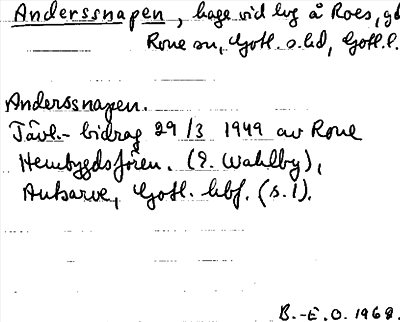 Anderssnapen, hage vid lvg å Roes, gd
Rone sn, Gotl. s. hd, Gotl. l.
Anderssnapen.
Tävl.- bidrag 29/3 1949 av Rone
Hembygdsfören. (E. Wahlby),
Autsarve, Gotl. hbf. (s. 1).
B.-E.O. 1968.